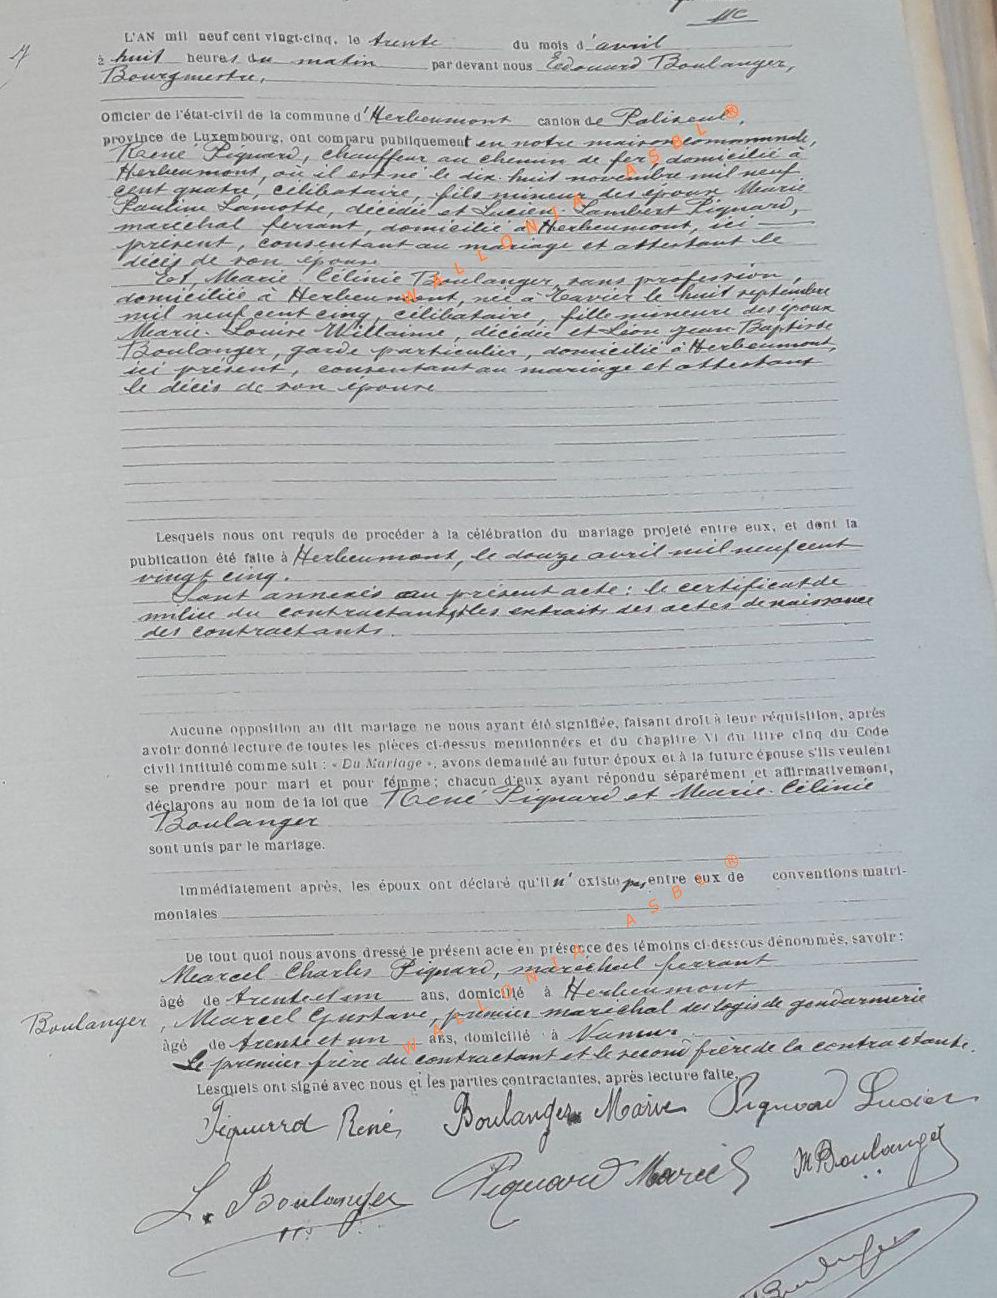 7
L'AN mil neuf cent vingt-cinq, le trente du mois d'avril
à huit heures du matin par devant nous Edouard Boulanger,
Bourgmestre,
Officier de l'état-civil de la commune d'Herbeumont canton de Paliseul,
province de Luxembourg, ont comparu publiquement en notre maison communale,
René Pignard, chauffeur au chemin de fer, domicilié à
Herbeumont, où il est né le dix-huit novembre mil neuf
cent quatre, célibataire, fils mineur des époux Marie
Pauline Lamotte, décédée et Lucien Lambert Pignard,
maréchal ferrant, domicilié à Herbeumont, ici
présent, consentant au mariage et attestant le
décès de son épouse
Et, Marie Célinie Boulanger, sans profession,
domiciliée à Herbeumont, née à Tavier le huit septembre
mil neuf cent cinq, célibataire, fille mineure des époux
Marie-Louise Willaime, décédée et Léon Jean-Baptiste
Boulanger, garde particulier, domicilié à Herbeumont,
ici présent, consentant au mariage et attestant
le décès de son épouse
Lesquels nous ont requis de procéder à la célébration du mariage projeté entre eux, et dont la
publication été faite à Herbeumont, le douze avril mil neuf cent
vingt cinq.
Sont annexés au présent acte : le certificat de
milice du contractant, les extraits des actes de naissance
des contractants.
Aucune opposition au dit mariage ne nous ayant été signifiée, faisant droit à leur réquisition, après
avoir donné lecture de toutes les pièces ci-dessus mentionnées et du chapitre VI du titre cinq du Code
civil intitulé comme suit : « Du Mariage », avons demandé au futur époux et à la future épouse s'ils veulent
se prendre pour mari et pour femme ; chacun d'eux ayant répondu séparément et affirmativement,
déclarons au nom de la loi que René Pignard et Marie-Célinie
Boulanger
sont unis par le mariage.
Immédiatement après, les époux ont déclaré qu'il n'existe pas entre eux de conventions matri-
moniales
De tout quoi nous avons dressé le présent acte en présence des témoins ci-dessous dénommés, savoir :
Marcel Charles Pignard, maréchal ferrant
âgé de trente et un ans, domicilié à Herbeumont
Boulanger, Marcel Gustave, premier maréchal des logis de gendarmerie
âgé de trente et un ans, domicilié à Namur
Le premier frère du contractant et le second frère de la contractante.
Lesquels ont signé avec nous et les parties contractantes, après lecture faite.
Pignard René, Boulanger Marie Pignard Lucien
L. Boulanger Pignard Marcel M Boulanger
Boulanger
WALLONIA ASBL ®
WALLONIA ASBL ®